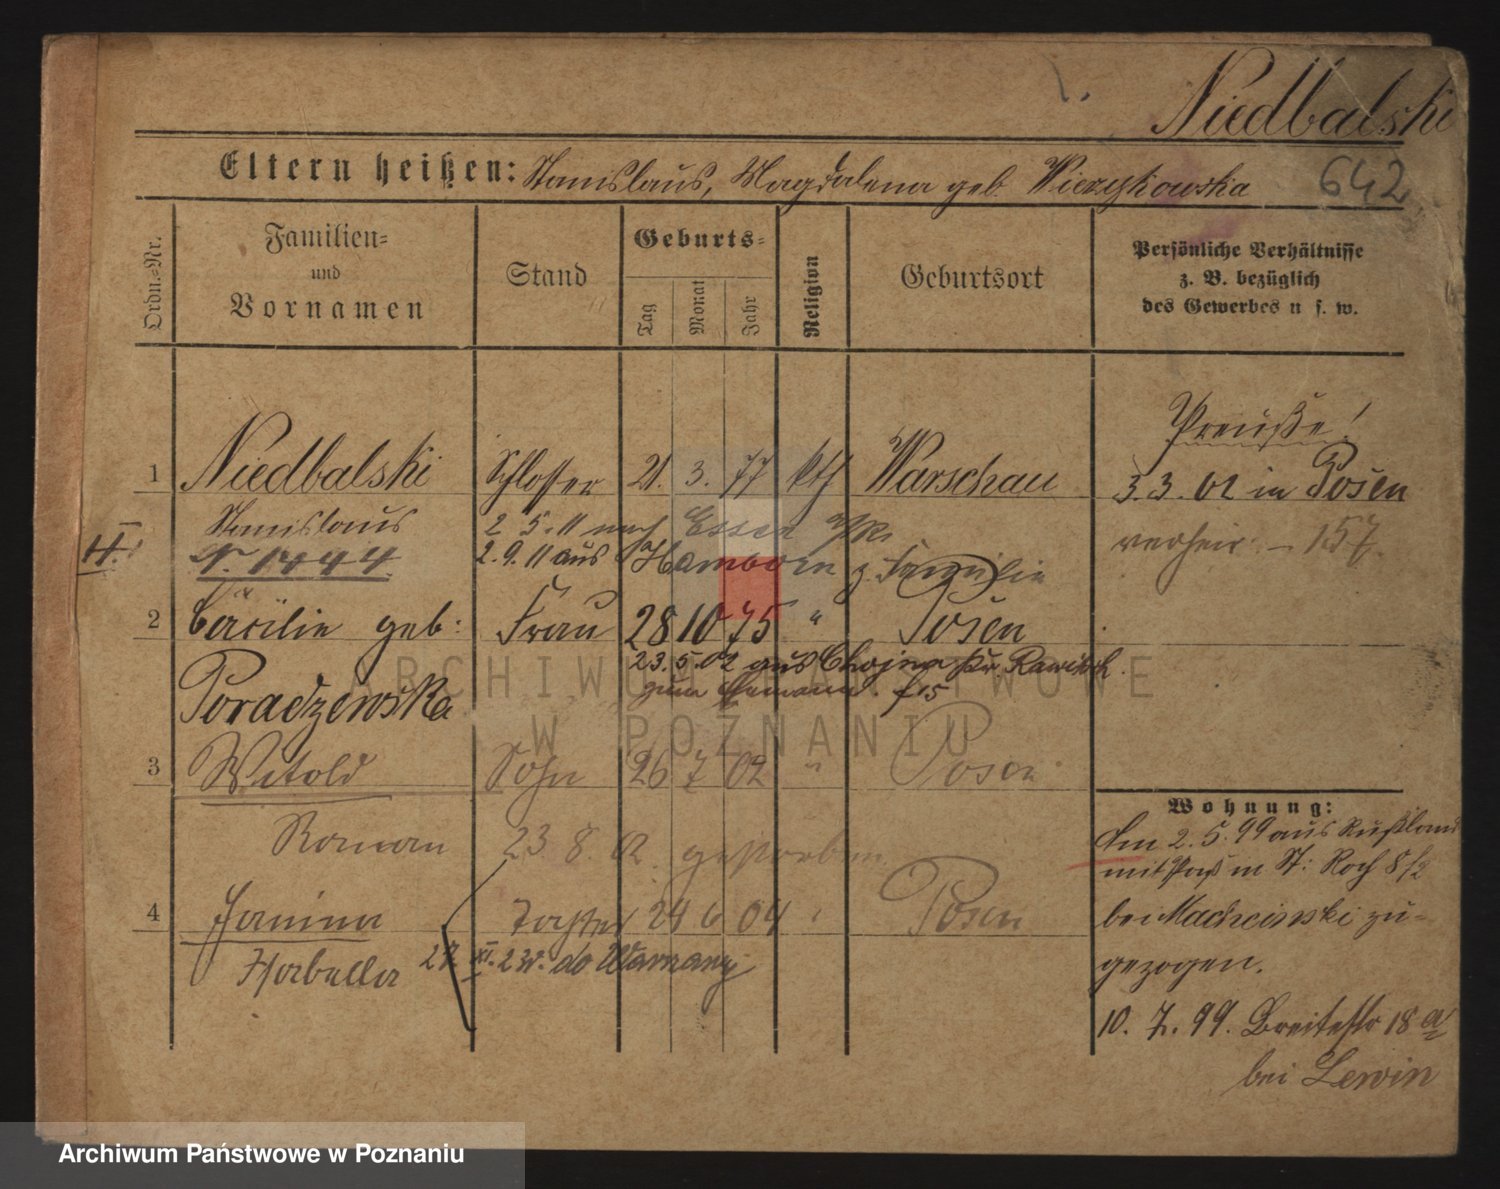 Niedbalski
Eltern heißen: Stanislaus, Magdalena geb. Wiczykowska 642
Ordn.-Nr.
Familien-
und
Vornamen
Stand
Geburts-
Tag
Monat
Jahr
Religion
Geburtsort
Persönliche Verhältnisse
z. B. bezüglich
des Gewerbes u s. w.
Preuße!
1 Niedbalski Schlosser 21. 3. 77 kth Warschau
3.3.02 in Posen
Stanislaus 2 5.11 nach Essen
verheir. – 157.
2.9.11 aus Hamborn z. Familie
2 Cäcilie geb: Frau 28 10 75 " Posen
23.5.02 aus Chojna Kr. Rawitsch
Poradzewska zum Ehemann
3 Witold Sohn 26 7 02 " Posen
Roman 23 8. 02 gestorben
4 Janina Tochter 24 6 04 Posen
Isabella 27. XI. do Warszawy
Wohnung:
Am 2.5.99 aus Rußland
mit Paß in St: Roch 8/2
bei zu-
gezogen.
10. 7. 99. Breitestr 18 a
bei Lewin
ARCHIWUM PAŃSTWOWE
W POZNANIU
Archiwum Państwowe w Poznaniu